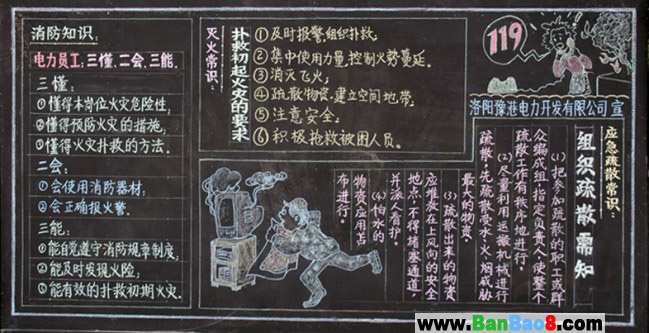 消防知识:
电力员工:三懂、二会、三能。
三懂:
①懂得本岗位火灾危险性,
②懂得预防火灾的措施,
③懂得火灾扑救的方法。
二会:
①会使用消防器材;
②会正确报火警。
三能:
①能自觉遵守消防规章制度,
②能及时发现火险;
③能有效的扑救初期火灾。
灭火常识:
扑救初起火灾的要求
①及时报警,组织扑救,
②集中使用力量,控制火势蔓延。
③消灭飞火;
④疏散物资,建立空间地带,
⑤注意安全;
⑥积极抢救被困人员。
119
洛阳豫港电力开发有限公司 宣
应急疏散常识:
组织疏散需知
(1)把参加疏散的职工或群
众编成组,指定负责人,使整个
疏散工作有秩序地进行。
(2)尽量利用运搬机械进行
疏散,先疏散受水、火、烟威胁
最大的物资。
(3)疏散出来的物资
应堆放在上风向的安全
地点,不得堵塞通道,
并派人看护。
(4)怕水的
物资应用苫
布进行。
www.BanBao8.com